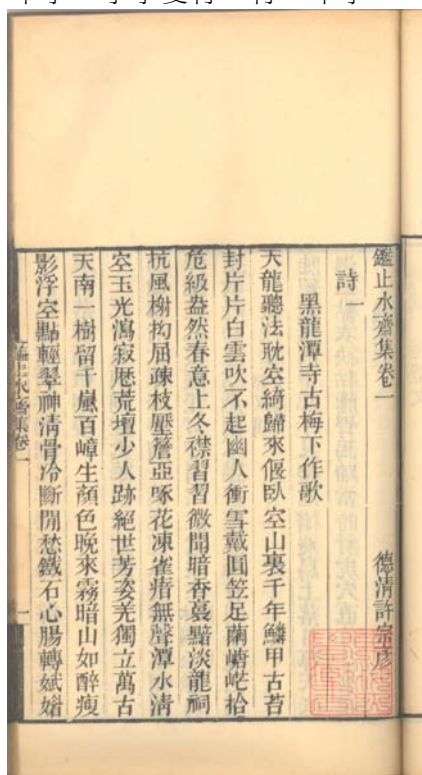 鑑止水齋集卷一
德清許宗彥
詩一
黑龍潭寺古梅下作歌
天龍聽法耽空綺歸來偃臥空山裏千年鱗甲古苔
封片片白雲吹不起幽人衝雪戴圓笠足繭嶢屼拾
危級盎然春意上冬襟習習微聞暗香裛黯淡龍祠
抗風榭拗屈疎枝壓簷亞啄花凍雀瘖無聲潭水清
空玉光瀉寂歷荒壇少人跡絕世芳姿羌獨立萬古
天南一樹留千嵐百嶂生顏色晚來霧暗山如醉瘦
影浮空點輕翠神清骨冷斷閒愁鐵石心腸轉斌媚
鑑止水齋集卷一
一